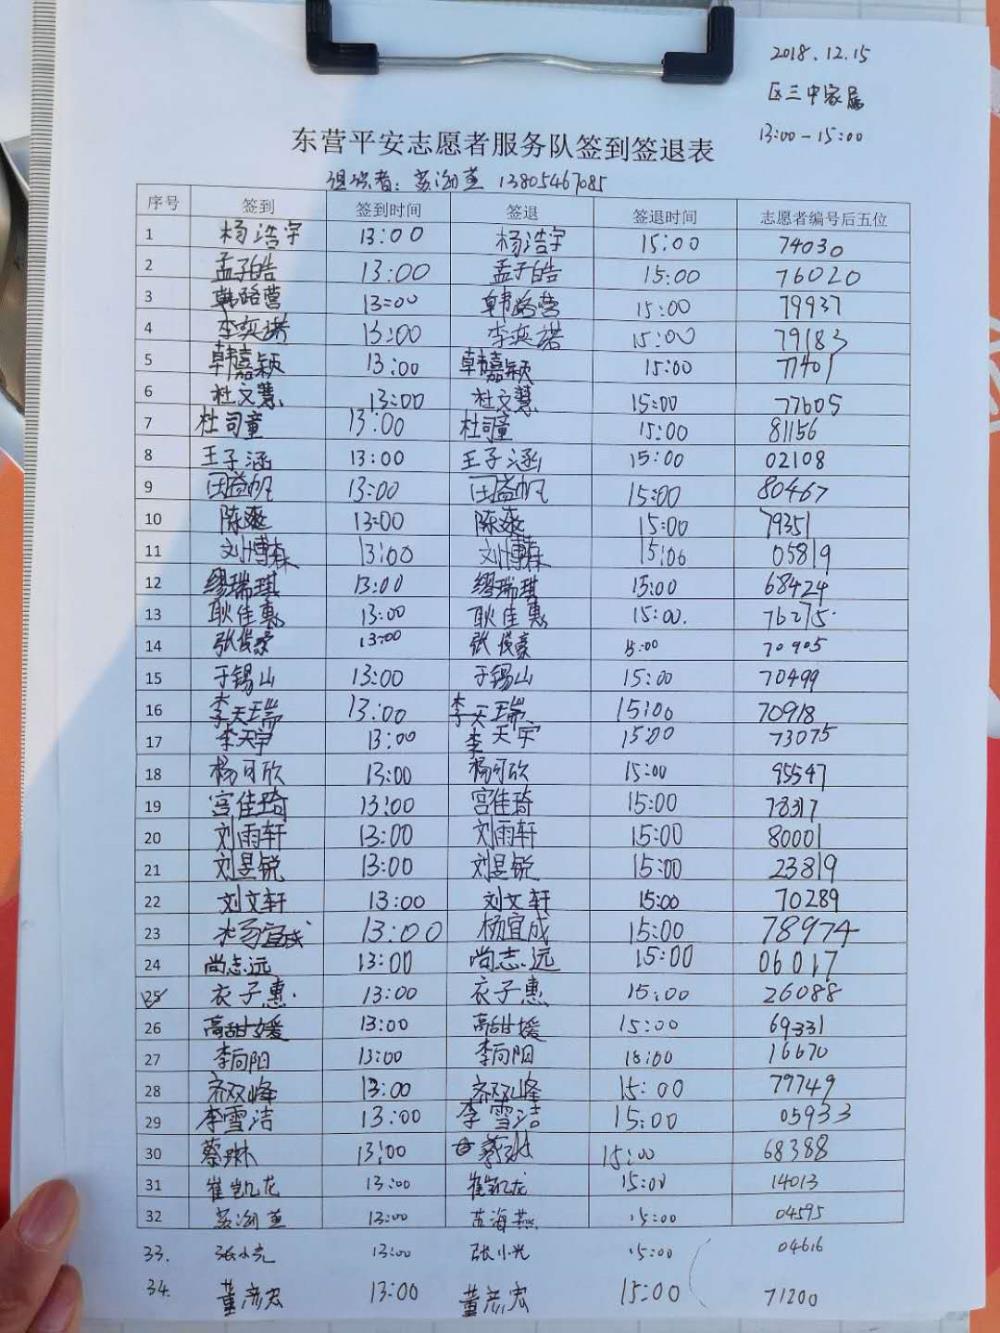 2018.12.15
区三中家属
13:00-15:00
东营平安志愿者服务队签到签退表
组织者: 13805467085
序号 签到 签到时间 签退 签退时间 志愿者编号后五位
1 杨浩宇 13:00 杨浩宇 15:00 74030
2 孟子皓 13:00 孟子皓 15:00 76020
3 韩路营 13:00 韩路营 15:00 79937
4 李奕诺 13:00 李奕诺 15:00 79183
5 韩嘉颖 13:00 韩嘉颖 15:00 77401
6 杜文慧 13:00 杜文慧 15:00 77605
7 杜司童 13:00 杜司童 15:00 81156
8 王子涵 13:00 王子涵 15:00 02108
9 田益帆 13:00 田益帆 15:00 80467
10 陈爽 13:00 陈爽 15:00 79351
11 刘博森 13:00 刘博森 15:00 05819
12 缪瑞琪 13:00 缪瑞琪 15:00 68424
13 耿佳惠 13:00 耿佳惠 15:00. 76275
14 张俊豪 13:00 张俊豪 15:00 70905
15 于锡山 13:00 于锡山 15:00 70499
16 李天瑞 13:00 李天瑞 15:00 70918
17 李天宇 13:00 李天宇 15:00 73075
18 杨可欣 13:00 杨可欣 15:00 95547
19 宫佳琦 13:00 宫佳琦 15:00 78317
20 刘雨轩 13:00 刘雨轩 15:00 80001
21 刘昱锐 13:00 刘昱锐 15:00 23819
22 刘文轩 13:00 刘文轩 15:00 70289
23 杨宜成 13:00 杨宜成 15:00 78974
24 尚志远 13:00 尚志远 15:00 06017
25 衣子惠 13:00 衣子惠 15:00 26088
26 高甜媛 13:00 高甜媛 15:00 69331
27 李向阳 13:00 李向阳 18:00 16670
28 齐双峰 13:00 齐双峰 15:00 79749
29 李雪洁 13:00 李雪洁 15:00 05933
30 蔡琳 13:00 蔡琳 15:00 68388
31 崔凯龙 13:00 崔凯龙 15:00 14013
32 13:00 苏海燕 15:00 04595
33. 张小光 13:00 张小光 15:00 04616
34. 董彦宏 13:00 董彦宏 15:00 71200